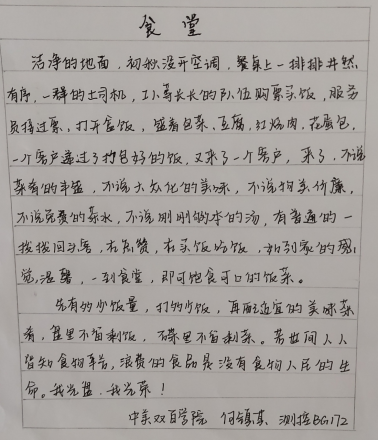 食堂
洁净的地面，初秋没开空调，餐桌上一排排井然
有序，一群的士司机，工人等长长的队伍购票买饭，服务
员接过票，打开食饭，盛着包菜、豆腐，红烧肉，花蛋包，
一个客户递过了打包好的饭，又来了一个客户，来了，不说
菜肴的丰盛，不说大众化的美味，不说物美价廉，
不说免费的茶水，不说刚刚做的汤，有普通的一
拨拨回头客，有点赞，有买饭吃饭，如到家的感
觉温馨，一到食堂，即可饱食可口的饭菜。
先有物少饭量，打物少饭，再配适宜的美味菜
肴，盘里不留剩饭，碟里不留剩菜。若世间人人
皆知食物辛苦，浪费的食品是没有食物人民的生
命。我光盘，我光荣！
中美双百学院 何镇其 测控BG172